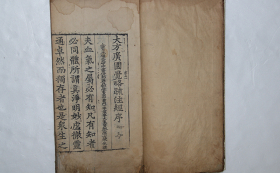 大方廣圓覺略疏注經序
夫血氣之屬必有知凡有知者
必同體所謂真淨明妙虛徹靈
通卓然而獨存者也是衆生之